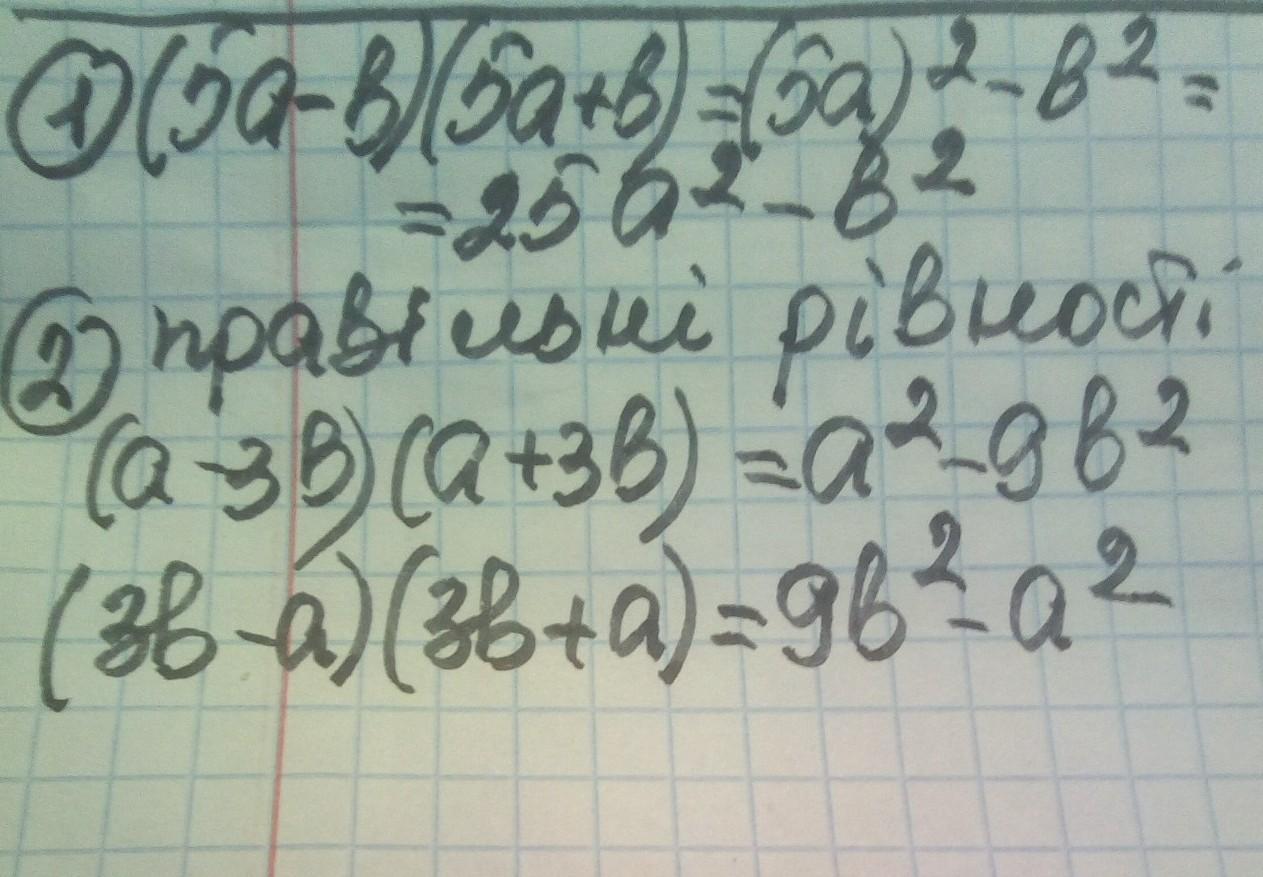 ① (5a-b)(5a+b)=(5a)²-b²=
=25a²-b²
② правильні рівності
(a-3b)(a+3b)=a²-9b²
(3b-a)(3b+a)=9b²-a²